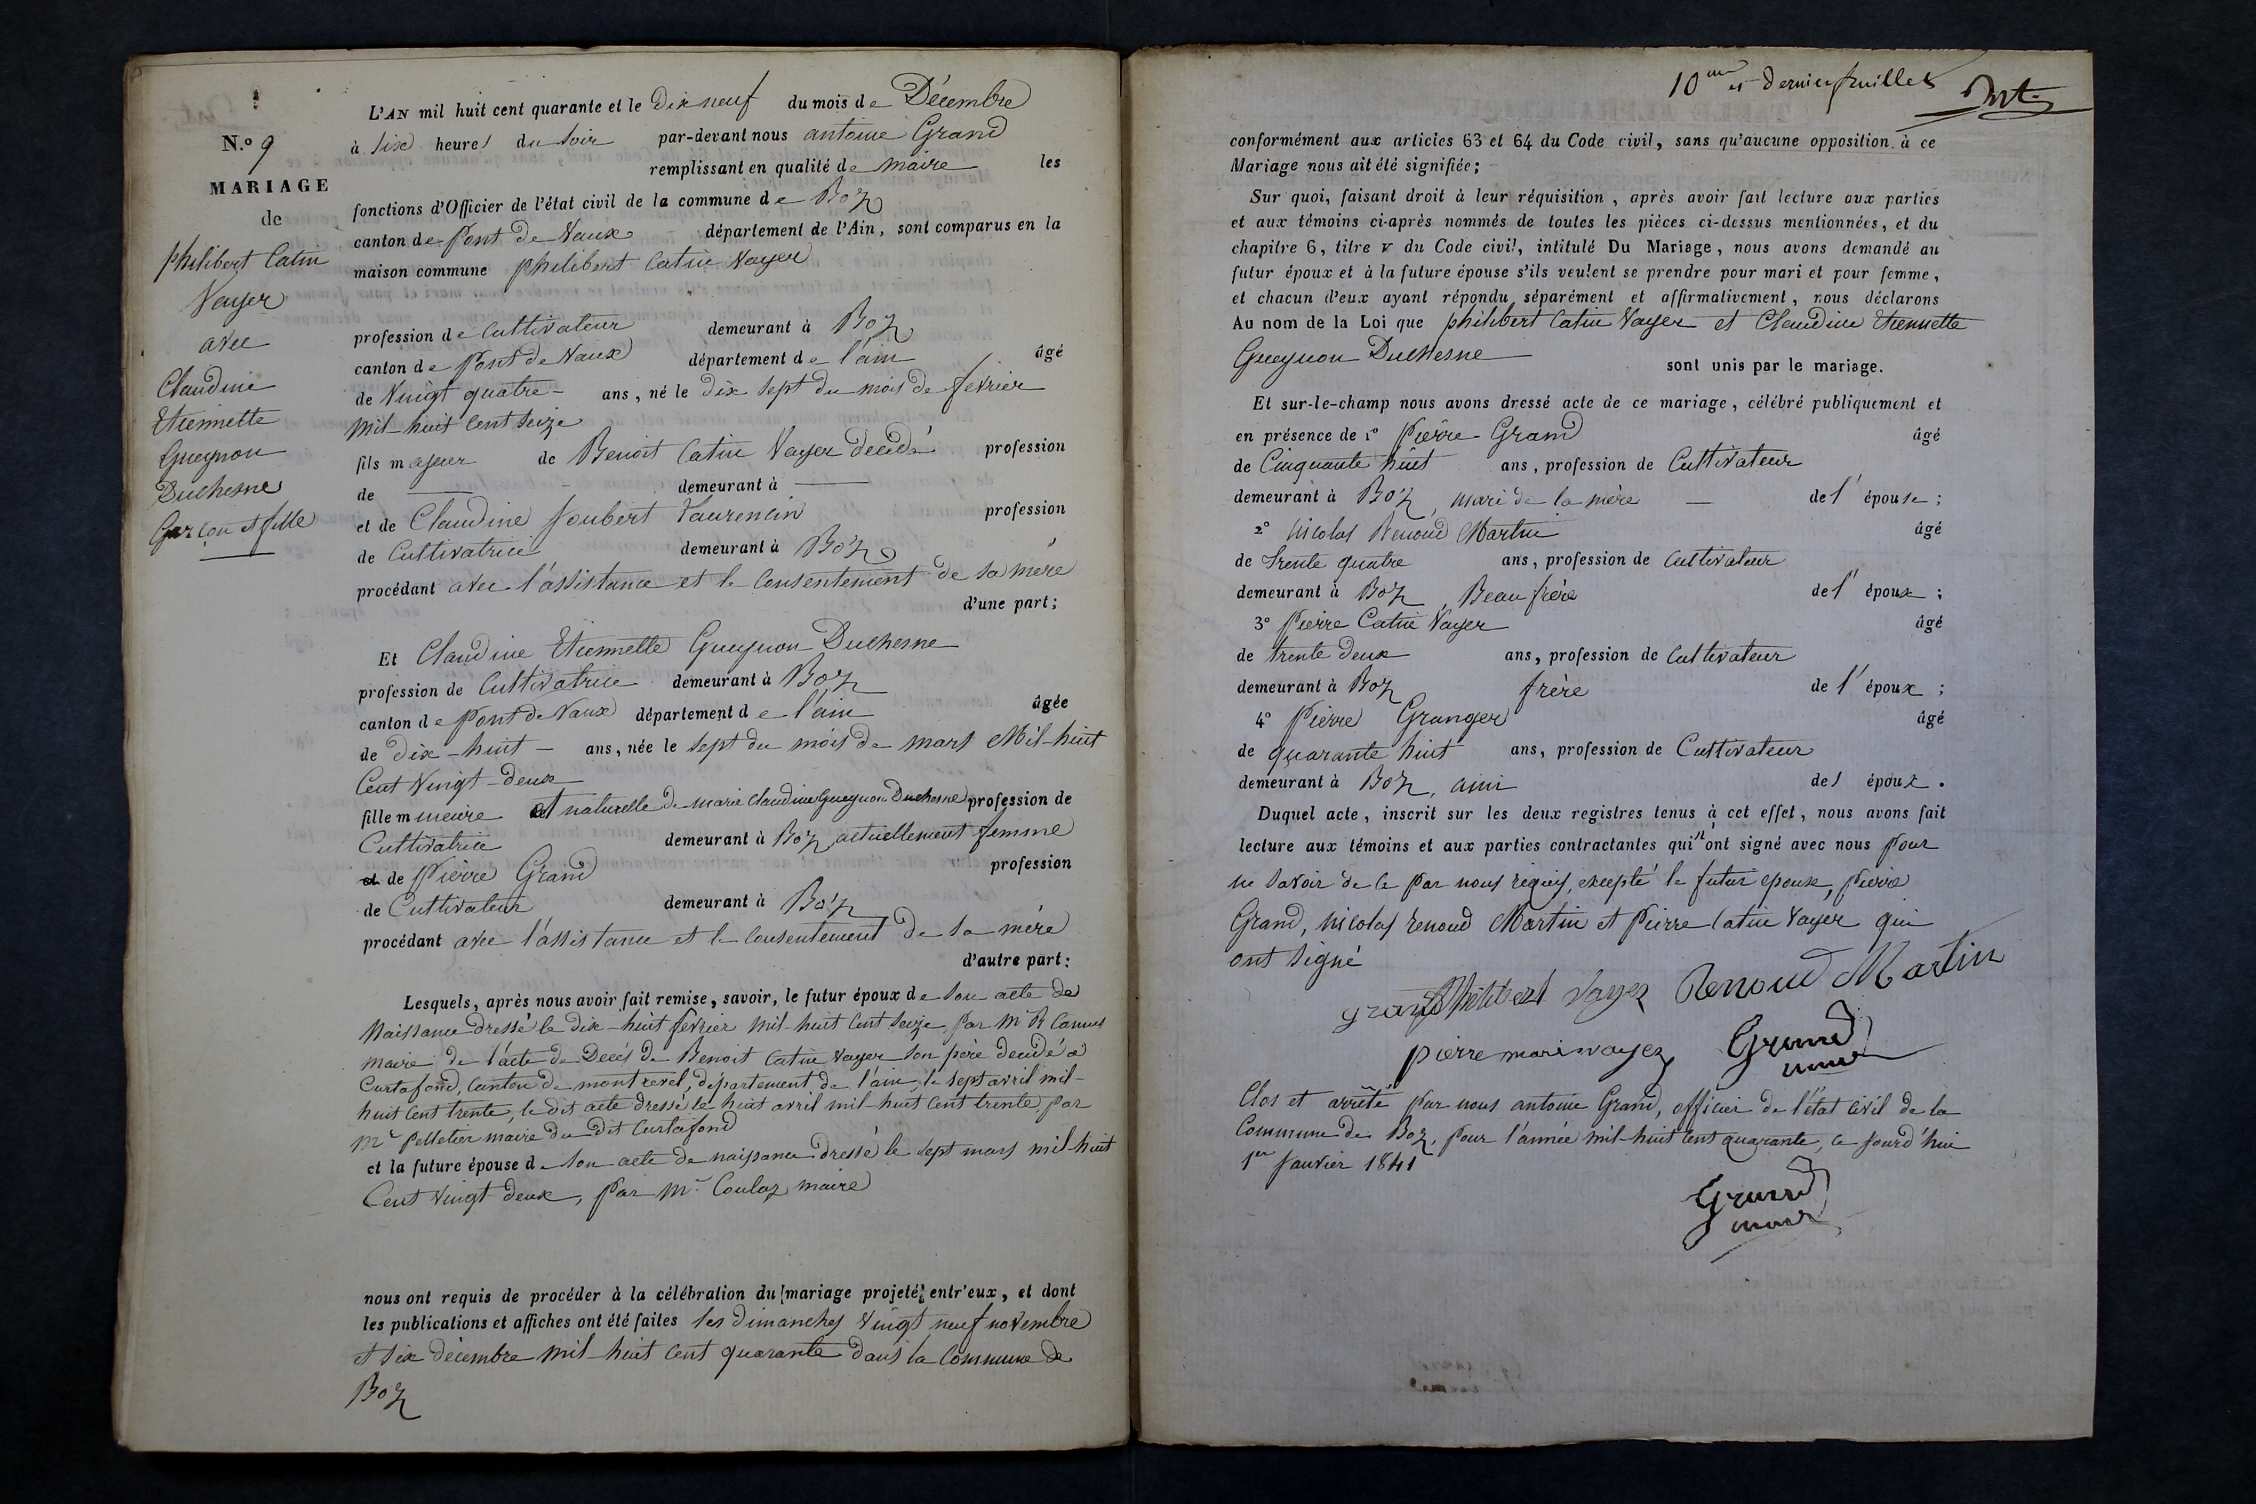 N.º 9
MARIAGE
de
philibert Catin
Vayer
avec
Claudine
Etiennette
Gueynon
Duchesne
Garçon et fille
L'AN mil huit cent quarante et le dix neuf du mois de Décembre
à six heures du soir par-devant nous antoine Grand
remplissant en qualité de maire les
fonctions d'Officier de l'état civil de la commune de Boz
canton de Pont de Vaux département de l'Ain, sont comparus en la
maison commune philibert Catin Vayer
profession de Cultivateur demeurant à Boz
canton de Pont de Vaux département de l'ain âgé
de Vingt quatre - ans, né le dix sept du mois de fevrier
mil-huit Cent seize
fils majeur de Benoit Catin Vayer décédé profession
de demeurant à
et de Claudine Joubert Laurencin profession
de Cultivatrice demeurant à Boz
procédant avec l'assistance et le Consentement de sa mère
d'une part;
Et Claudine Etiennette Gueynon Duchesne
profession de Cultivatrice demeurant à Boz
canton de Pont de Vaux département de l'ain âgée
de dix-huit - ans, née le sept du mois de mars Mil-huit
Cent Vingt-deux
fille mineure et naturelle de marie Claudine Gueynon Duchesne profession de
Cultivatrice demeurant à Boz actuellement femme
et de Pierre Grand profession
de Cultivateur demeurant à Boz
procédant avec l'assistance et le Consentement de sa mère
d'autre part:
Lesquels, après nous avoir fait remise, savoir, le futur époux de son acte de
Naissance dressé le dix-huit fevrier mil-huit Cent seize par Mr
maire de l'acte de Décès de Benoit Catin Vayer son père décédé à
Curtafond, Canton de montrevel, département de l'ain, le sept avril mil-
huit Cent trente, le dit acte dressé le huit avril mil-huit Cent trente, par
Mr Pelletier maire du dit Curtafond
et la future épouse de son acte de naissance dressé le sept mars mil-huit
Cent Vingt deux, par Mr Coulaz maire
nous ont requis de procéder à la célébration du mariage projeté entr'eux, et dont
les publications et affiches ont été faites les dimanches Vingt neuf novembre
et six décembre mil-huit Cent quarante dans la Commune de
Boz
10me et dernier feuillet
conformément aux articles 63 et 64 du Code civil, sans qu'aucune opposition à ce
Mariage nous ait été signifiée;
Sur quoi, faisant droit à leur réquisition, après avoir fait lecture aux parties
et aux témoins ci-après nommés de toutes les pièces ci-dessus mentionnées, et du
chapitre 6, titre v du Code civil, intitulé Du Mariage, nous avons demandé au
futur époux et à la future épouse s'ils veulent se prendre pour mari et pour femme,
et chacun d'eux ayant répondu séparément et affirmativement, nous déclarons
Au nom de la Loi que philibert Catin Vayer et Claudine Etiennette
Gueynon Duchesne sont unis par le mariage.
Et sur-le-champ nous avons dressé acte de ce mariage, célébré publiquement et
en présence de 1º Pierre Grand âgé
de Cinquante huit ans, profession de Cultivateur
demeurant à Boz, mari de la mère de l'épouse;
2º Nicolas Renoud Martin âgé
de Trente quatre ans, profession de Cultivateur
demeurant à Boz Beau frère de l'époux;
3º Pierre Catin Vayer âgé
de trente deux ans, profession de Cultivateur
demeurant à Boz frère de l'époux;
4º Pierre Granger âgé
de quarante huit ans, profession de Cultivateur
demeurant à Boz, ami des époux.
Duquel acte, inscrit sur les deux registres tenus à cet effet, nous avons fait
lecture aux témoins et aux parties contractantes qui n'ont signé avec nous pour
ne savoir de ce par nous requis, excepté le futur epoux, Pierre
Grand, Nicolas renoud Martin et Pierre Catin Vayer qui
ont signé
grand Philibert Vayer Renoud Martin
pierre mari vayer Grand
maire
Clos et arrêté par nous antoine Grand, officier de l'état Civil de la
Commune de Boz, pour l'année mil-huit Cent quarante, ce jourd'hui
1er Janvier 1841
Grand
maire